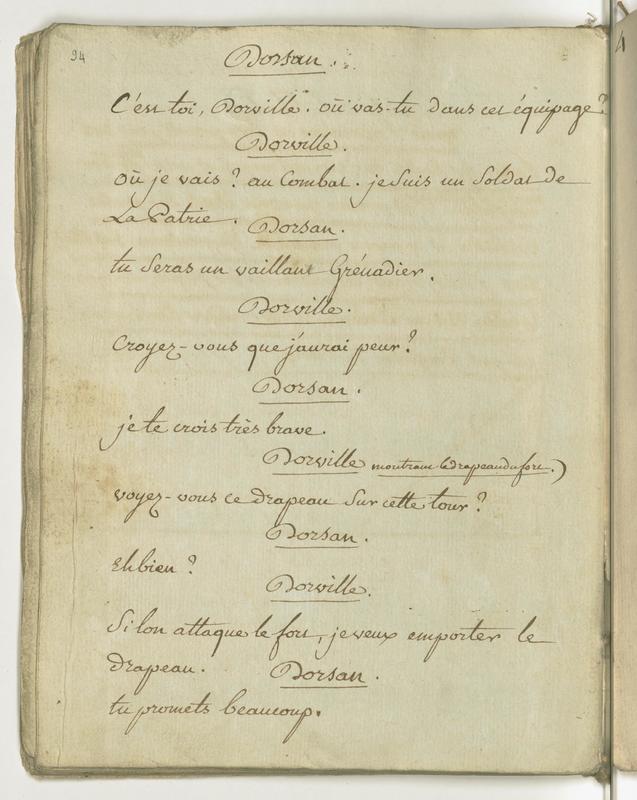 94
Dorsan.
C'est toi, Dorville. où vas-tu dans cet équipage?
Dorville.
où je vais? au Combat. je suis un Soldat de
La Patrie.
Dorsan.
tu Seras un vaillant Grénadier.
Dorville.
Croyez-vous que j'aurai peur?
Dorsan.
je te crois très brave.
Dorville montrant le drapeau du fort.)
voyez-vous ce drapeau Sur cette tour?
Dorsan.
Eh bien?
Dorville.
Si lon attaque le fort, je veux emporter le
drapeau.
Dorsan.
tu promets beaucoup.